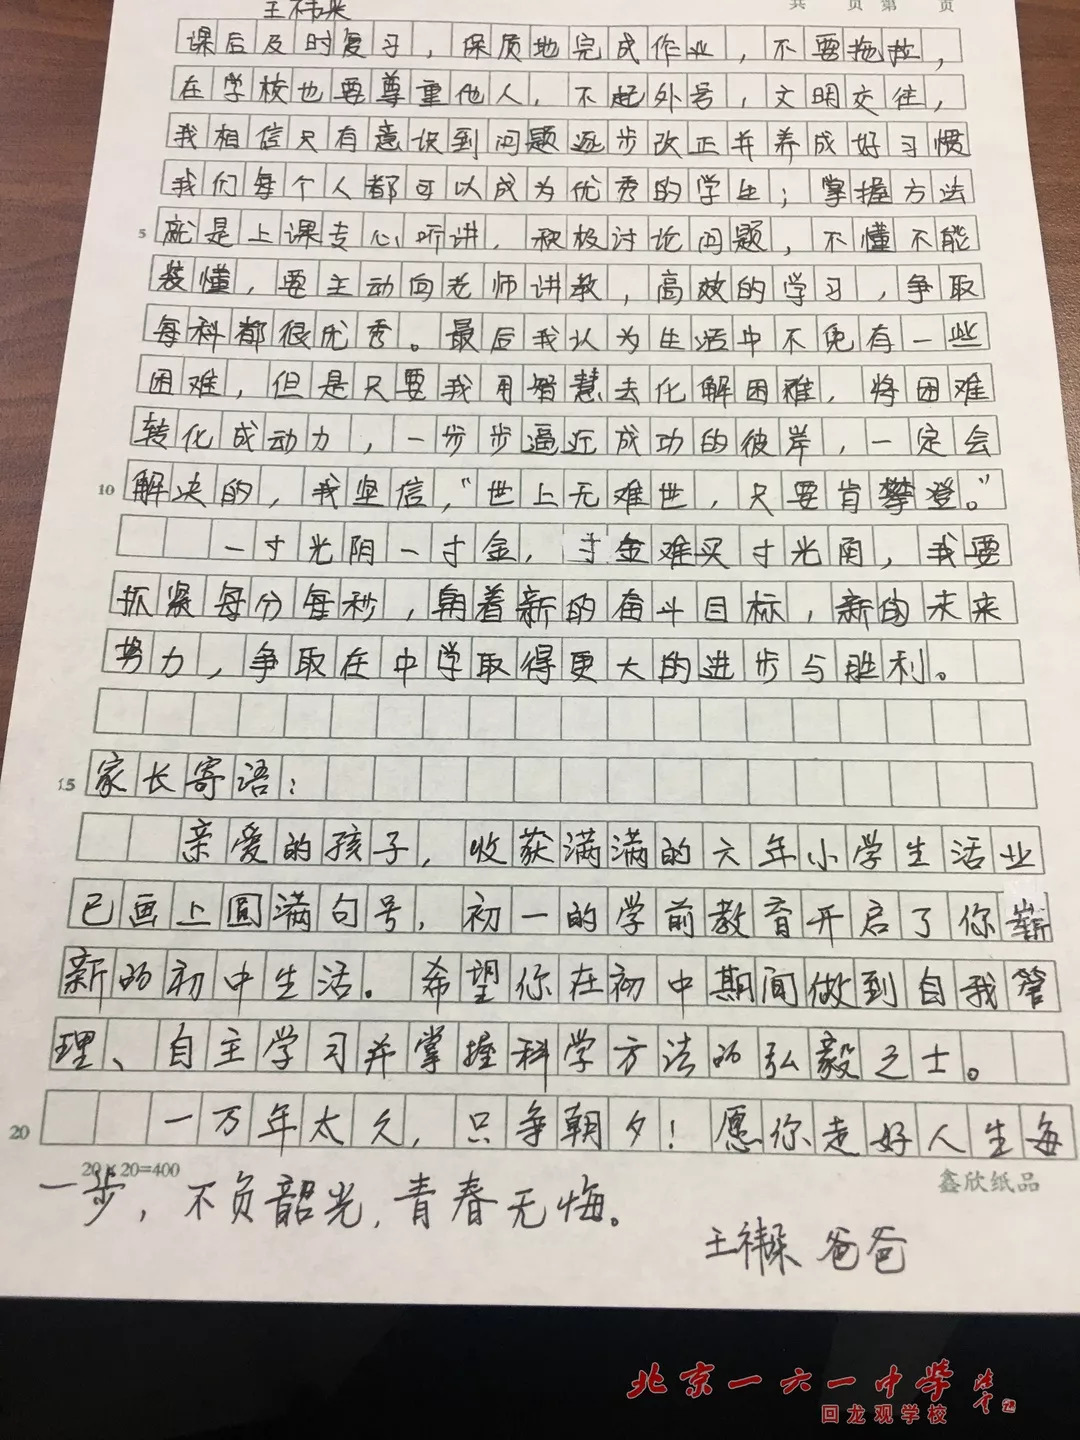 共 页 第 页
课后及时复习，保质地完成作业，不要拖拉，
在学校也要尊重他人，不起外号，文明交往，
我相信只有意识到问题逐步改正并养成好习惯
我们每个人都可以成为优秀的学生；掌握方法
5 就是上课专心听讲，积极讨论问题，不懂不能
装懂，要主动向老师讲教，高效的学习，争取
每科都很优秀。最后我认为生活中不免有一些
困难，但是只要我用智慧去化解困难，将困难
转化成动力，一步步逼近成功的彼岸，一定会
10 解决的，我坚信，“世上无难世，只要肯攀登。”
一寸光阴一寸金，寸金难买寸光阴，我要
抓紧每分每秒，朝着新的奋斗目标，新的未来
努力，争取在中学取得更大的进步与胜利。
15 家长寄语：
亲爱的孩子，收获满满的六年小学生活业
已画上圆满句号，初一的学前教育开启了你崭
新的初中生活。希望你在初中期间做到自我管
理、自主学习并掌握科学方法的弘毅之士。
20 一万年太久，只争朝夕！愿你走好人生每
20×20=400 鑫欣纸品
一步，不负韶光，青春无悔。
王祎 爸爸
北京一六一中学
回龙观学校